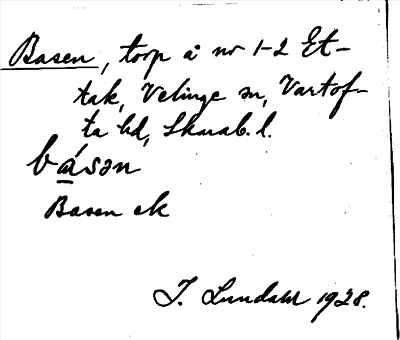 Basen, torp å nr 1-2 Et-
tak, Velinge sn, Vartof-
ta hd, Skarab. l.
básən
Basen ek
I. Lundahl 1928.